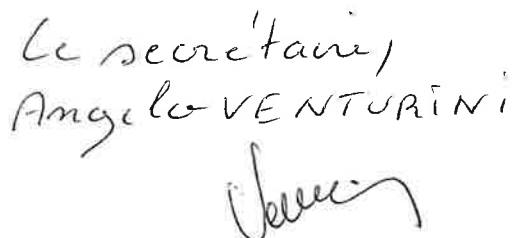 Le secrétaire,
Angelo VENTURINI